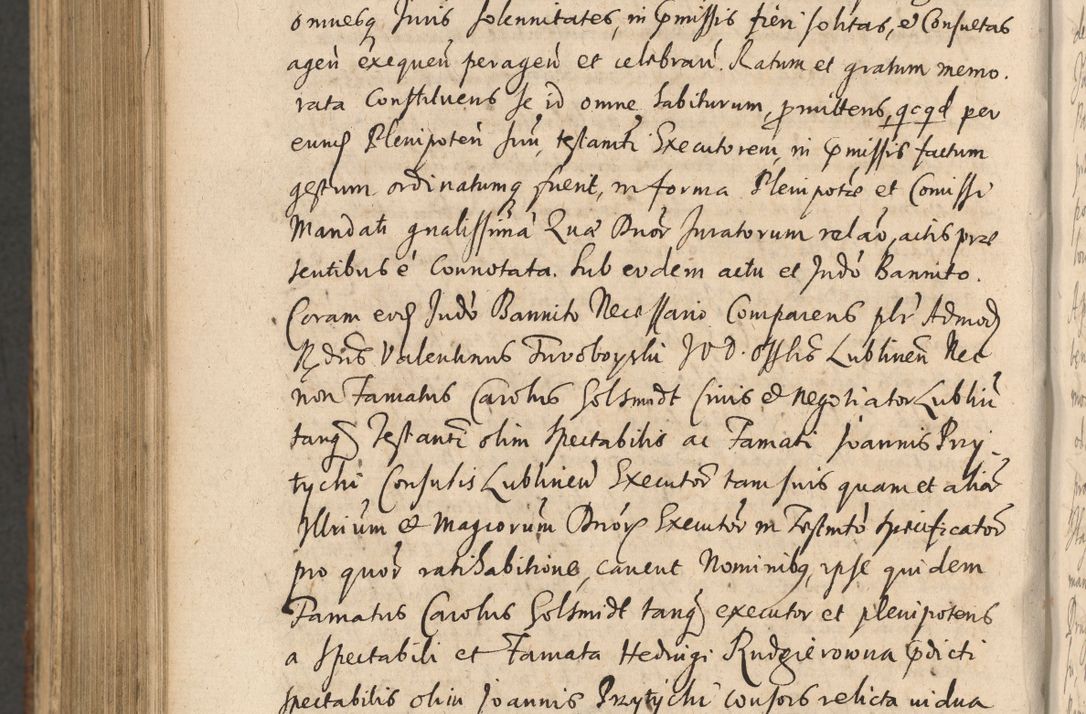 omnesq Juris solennitates, in pmissis fieri solitas, et Consuetas
agen exequen peragen et celebran. Ratum et gratum memo.
rata Constituens se id omne habiturum, promittens, qcqd per
eund Plenipoten suu, testamti Executorem, in pmissis factum
gestum ordinatumq fuerit, in forma Plenipotae et Comissi
Mandati gnalissima Quae Dnor Juratorum relao, actis prae
sentibus e Connotata. Sub eodem actu et Judo Bannito.
Coram eod Judo Bannito Necessario Comparens plr Admod
Rdus Valentinus Turoboyski J V D. Offlis Lublinen Nec
non Famatus Carolus Holsmidt Civis et Negotiator Lublin
tanq Testanti olim Spectabilis ac Famati Joannis Przy
tychi Consulis Lublinen Executor tam suis quam et alior
Illrium et Magcorum Dnor Executor in Testmto specificator
pro quor ratihabitione, cavent Nominibq, ipse quidem
Famatus Carolus Holsmidt tanq executor et plenipotens
a Spectabili et Famata Hedvigi Rudgierowna pdicti
spectabilis olim Joannis Przytychi consors relicta vidua